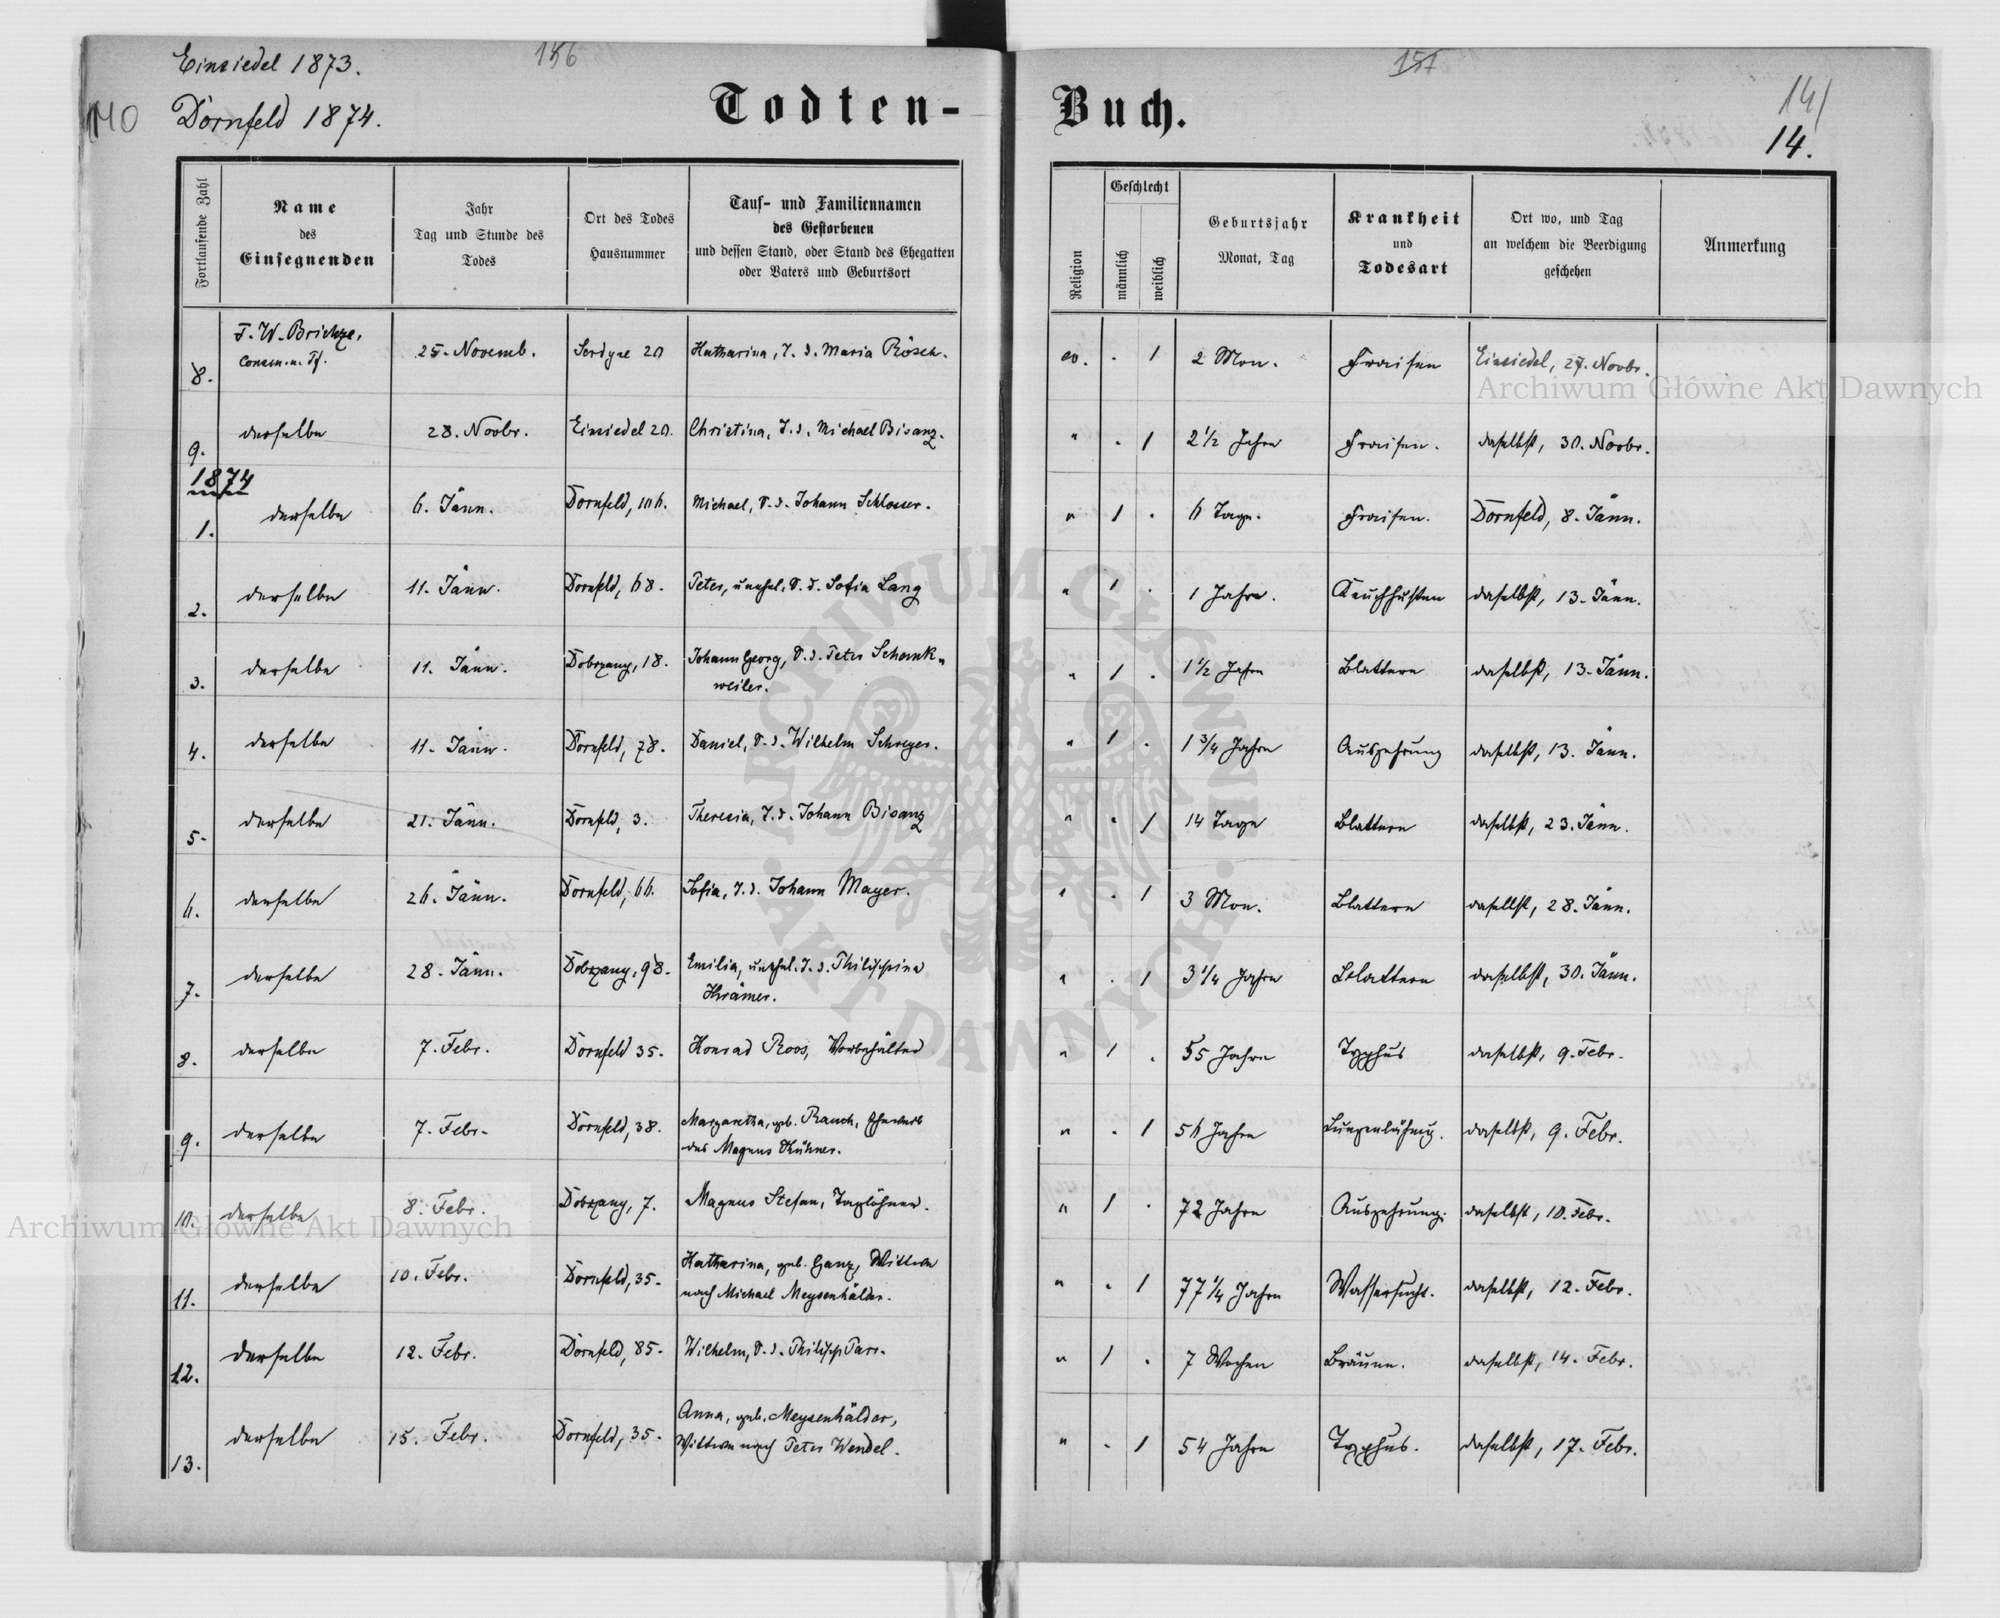 Einsiedel 1873.
156
Dornfeld 1874.
140
Todten-
Fortlaufende Zahl
Name
des
Einsegnenden
Jahr
Tag und Stunde des
Todes
Ort des Todes
Hausnummer
Tauf- und Familiennamen
des Gestorbenen
und dessen Stand, oder Stand des Ehegatten
oder Vaters und Geburtsort
8. F. W. 25. Novemb. 20 Katharina, T. d. Maria Rösch.
9. derselbe 28. Novbr. Einsiedel 20. Christina, T. d. Michael Bisanz.
1874
1. derselbe 6. Jänn. Dornfeld, 106. Michael, S. d. Johann Schlosser.
2. derselbe 11. Jänn. Dornfeld, 68. Peter, unehel. S. d. Sofia Lang
3. derselbe 11. Jänn. Dobrzany, 18. Johann Georg, S. d. Peter Schenk-
weiler.
4. derselbe 11. Jänn. Dornfeld, 78. Daniel, S. d. Wilhelm Schreyer.
5. derselbe 21. Jänn. Dornfeld, 3. Theresia, T. d. Johann Bisanz
6. derselbe 26. Jänn. Dornfeld, 66. Sofia, T. d. Johann Mayer.
7. derselbe 28. Jänn. Dobrzany, 98. Emilia, unehel. T. d. Philippina
Krämer.
8. derselbe 7. Febr. Dornfeld 35. Konrad Roos, Vorbehälter
9. derselbe 7. Febr. Dornfeld, 38. Margaretha, geb. Rauch, Eheweib
des Magnus Kühner.
10. derselbe 8. Febr. Dobrzany, 7. Magnus Stefan, Taglöhner.
11. derselbe 10. Febr. Dornfeld, 35. Katharina, geb. Ganz, Wittwe
nach Michael Meysenhälder.
12. derselbe 12. Febr. Dornfeld, 85. Wilhelm, S. d. Philipp Parr.
13. derselbe 15. Febr. Dornfeld, 35. Anna, geb. Meysenhälder,
Wittwe nach Peter Wendel.
157
141
Buch.
14.
Religion
Geschlecht
männlich
weiblich
Geburtsjahr
Monat, Tag
Krankheit
und
Todesart
Ort wo, und Tag
an welchem die Beerdigung
geschehen
Anmerkung
ev. . 1 2 Mon. Fraisen Einsiedel, 27. Novbr.
" . 1 2 1/2 Jahre Fraisen. daselbst, 30. Novbr.
" 1 . 6 Tage. Fraisen. Dornfeld, 8. Jänn.
" 1 . 1 Jahre. Keuchhusten daselbst, 13. Jänn.
" 1 . 1 1/2 Jahre Blattern daselbst, 13. Jänn.
" 1 . 1 3/4 Jahre Auszehrung daselbst, 13. Jänn.
" . 1 14 Tage Blattern daselbst, 23. Jänn.
" . 1 3 Mon. Blattern daselbst, 28. Jänn.
" . 1 3 1/4 Jahre Blattern daselbst, 30. Jänn.
" 1 . 55 Jahre Typhus daselbst, 9. Febr.
" . 1 56 Jahre Lungenlähmg. daselbst, 9. Febr.
" 1 . 72 Jahre Auszehrung. daselbst, 10. Febr.
" . 1 77 1/4 Jahre Wassersucht. daselbst, 12. Febr.
" 1 . 7 Wochen Bräune. daselbst, 14. Febr.
" . 1 54 Jahre Typhus. daselbst, 17. Febr.
Archiwum Główne Akt Dawnych
Archiwum Główne Akt Dawnych
ARCHIWUM GŁÓWNE
AKT DAWNYCH